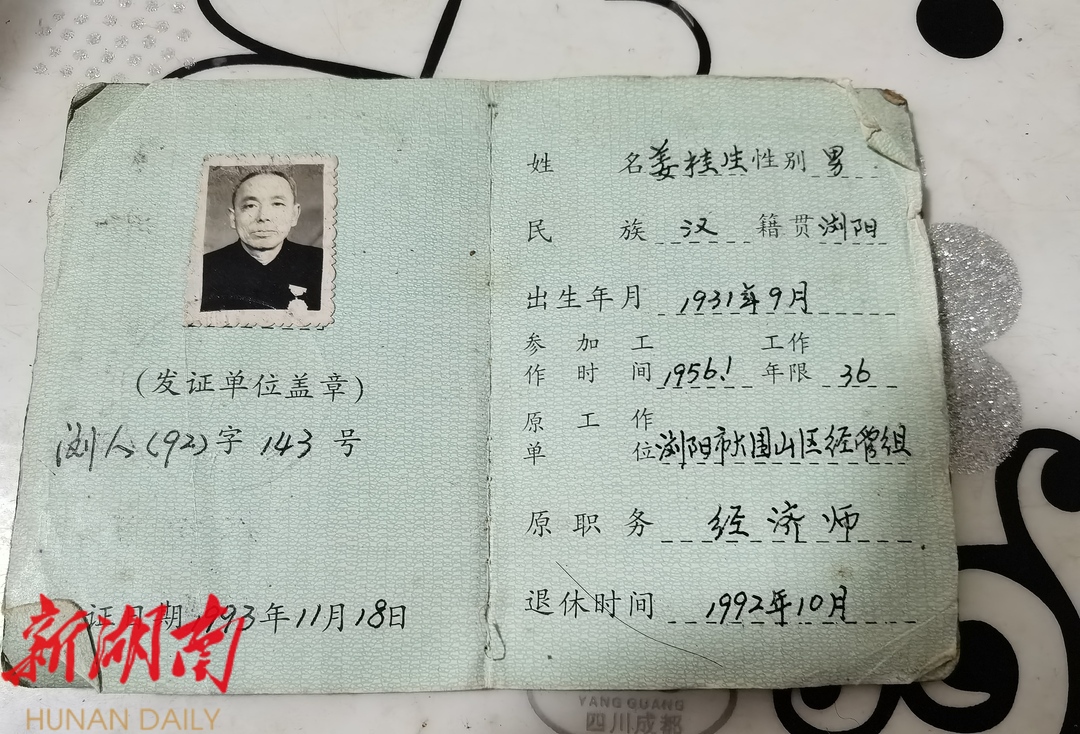 (发证单位盖章)
浏人(92)字 143 号
证日期1993年11月18日
姓 名 姜桂生 性别 男
民 族 汉 籍贯 浏阳
出生年月 1931年9月
参 加 工 工作
作 时 间 1956.1 年限 36
原 工 作
单 位 浏阳市大围山区经管组
原 职 务 经济师
退休时间 1992年10月
新湖南
HUNAN DAILY
YANG GUANG
四川成都